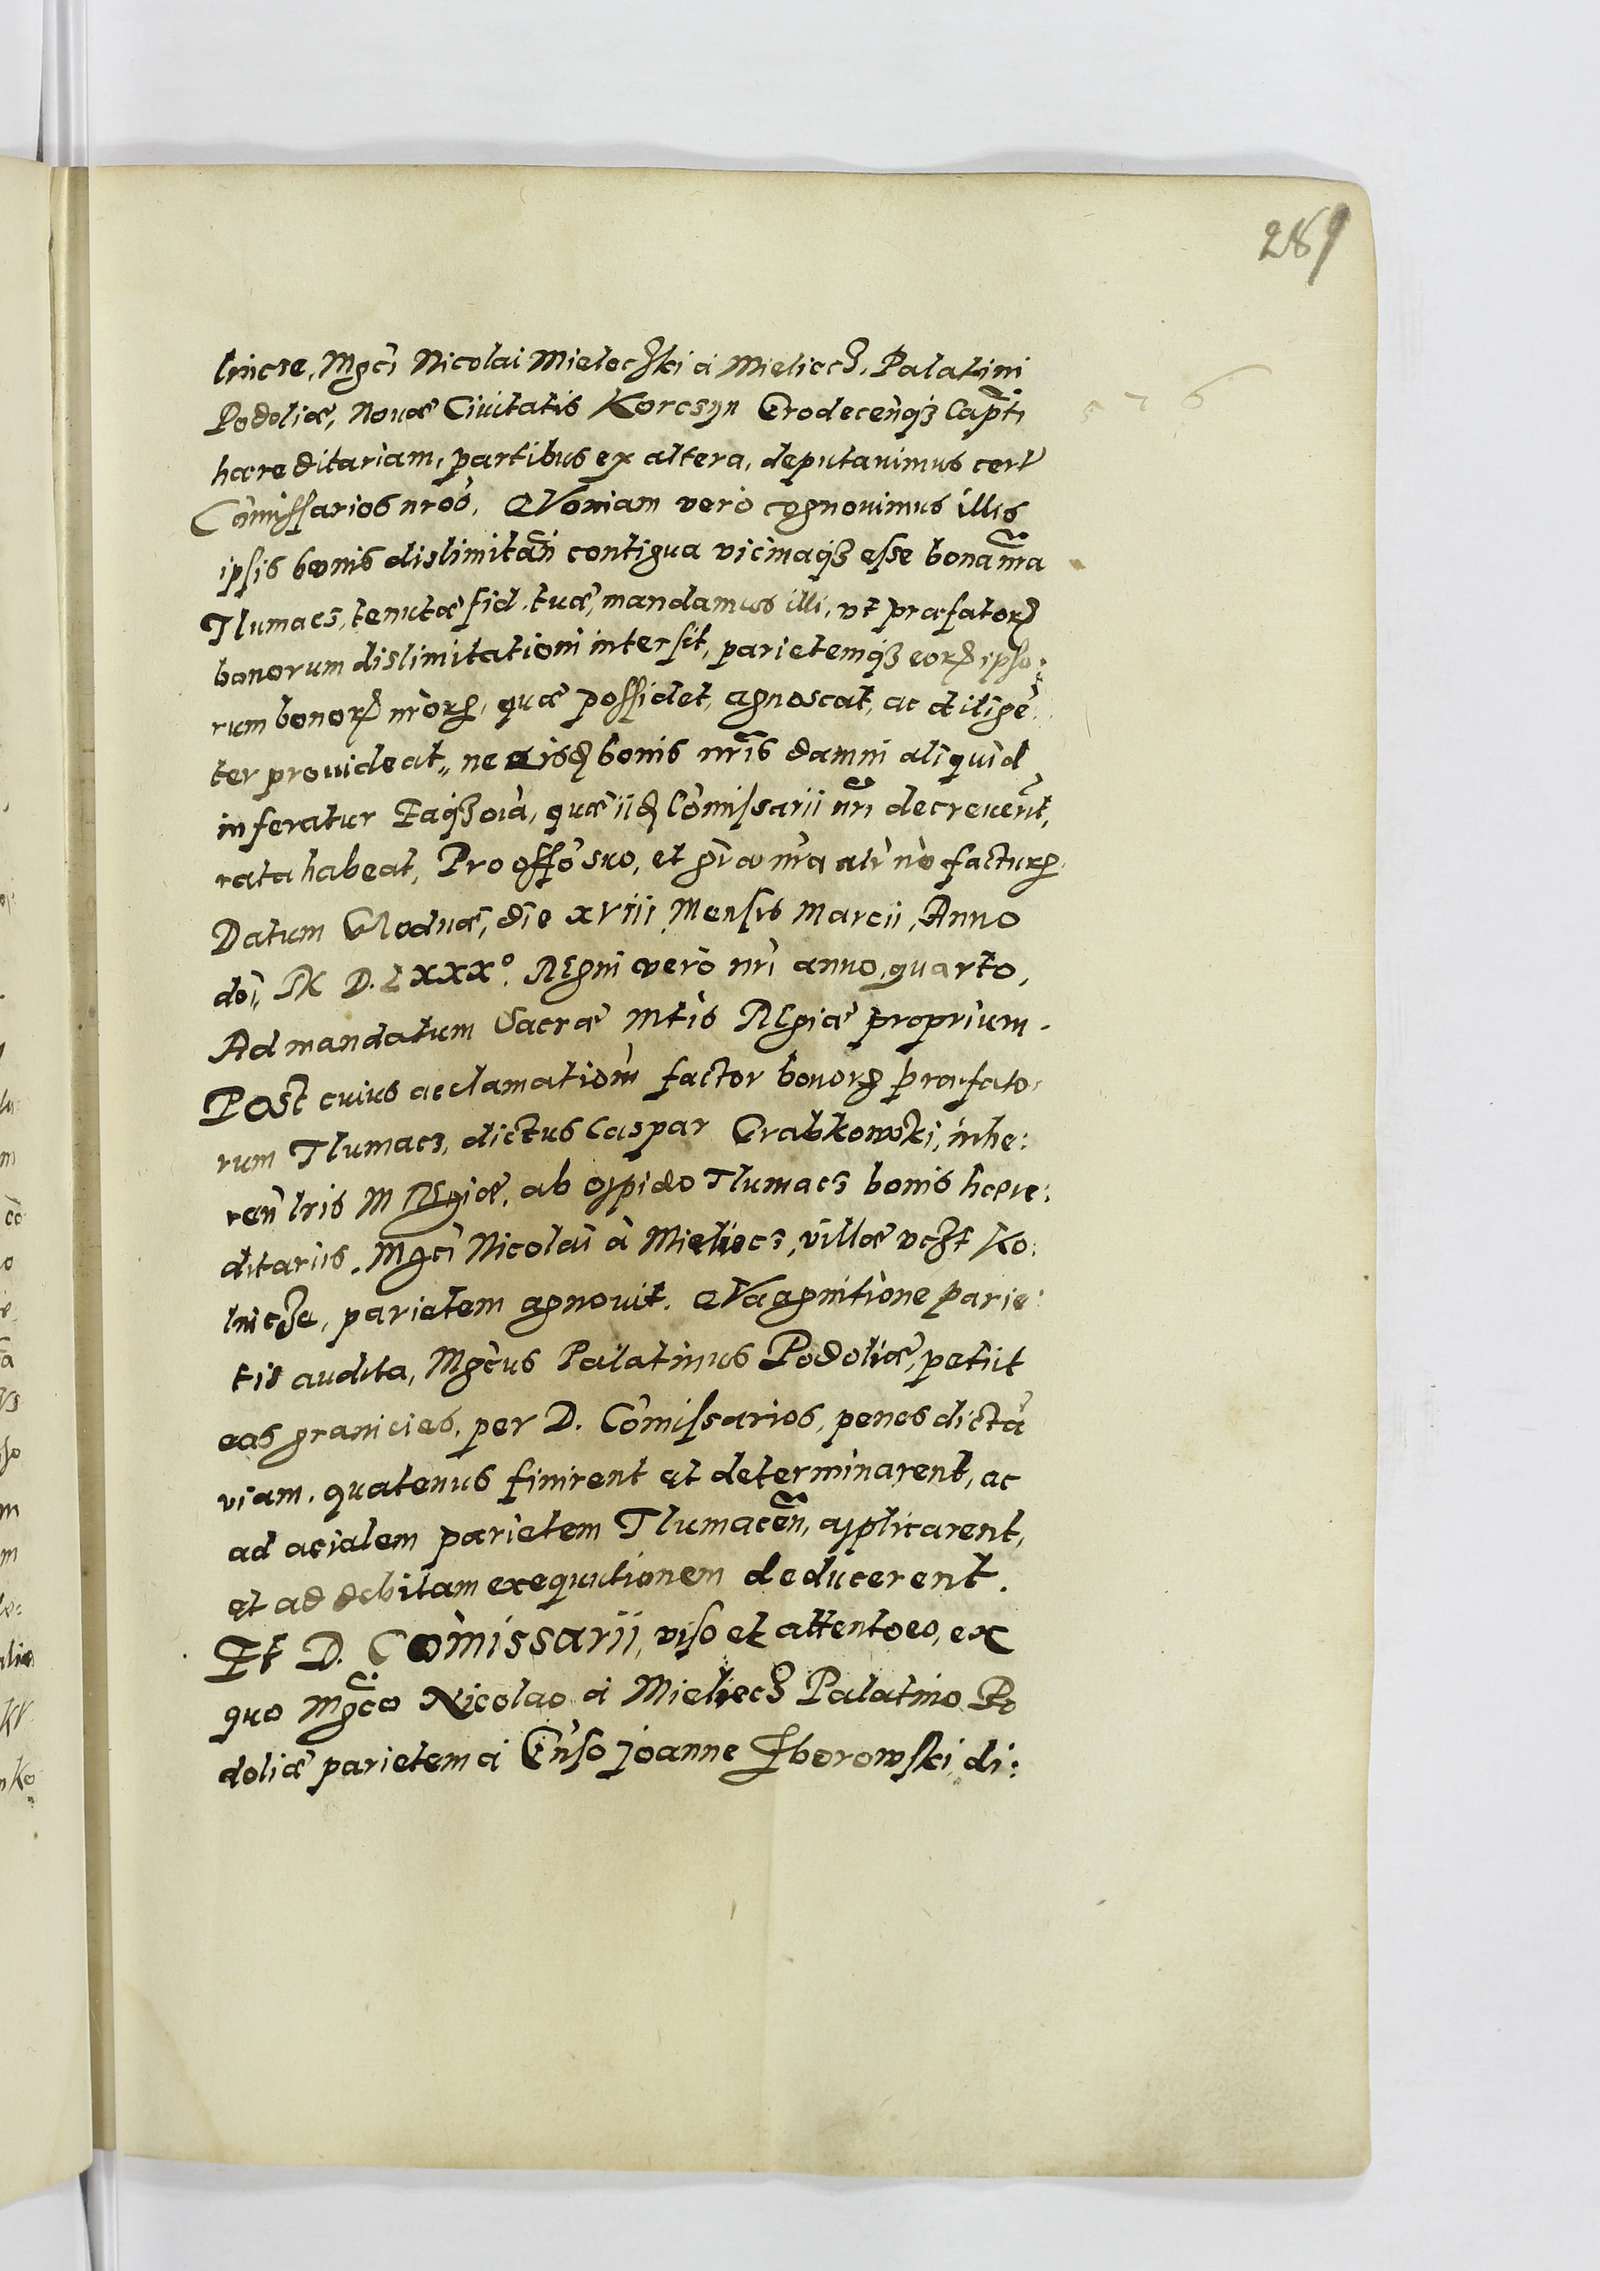 289
576
lnicze, Mgci Nicolai Mieleczki à Mieliecz, Palatini
Podoliæ, Nouæ Ciuitatis Korczyn Grodecen̄qȝ Capt̄i
hæreditariam, partibus ex altera, deputauimus cert
Cōmissarios nr̄os, QVoniam verò cognouimus illis
ipsis bonis dislimitan̄ contigua vicinaqȝ esse bona nr̄a
Tlumacz, tenutæ fid. tuæ, mandamus illi, vt præfatorꝝ
bonorum dislimitationi intersit, parietemqȝ eorꝝ ipso:
rum bonorꝝ nr̄orꝝ, quæ possidet, agnoscat, ac diligē
ter prouideat, ne eisdꝫ bonis nr̄is damni aliquid
inferatur Eaqȝ oīa, quæ iidꝫ Cōmissarii nr̄i decreuerīt,
rata habeat, Pro offō suo, et gr̄a nr̄a alr̄ nō facturꝝ.
Datum Clodauæ, die XVIII Mensis Marcii, Anno
doī M D. LXXXº. REgni verò nr̄i anno, quarto,
Ad mandatum Sacræ Mt̄is REgiæ proprium.
POSt cuius acclamationē factor bonorꝝ præfato:
rum Tlumacz, dictus Caspar Grabkowski, inhe:
ren̄ lris M REgiæ, ab oppido Tlumacz bonis hære:
ditariis, Mgci Nicolai à Mieliecz, villæ vczt Ko:
lnicze, parietem agnouit. QVa agnitione parie:
tis audita, Mgcus Palatinus Podoliæ, petiit
eas granicies, per D. Cōmissarios, penes dictā
viam, quatenus finirent et determinarent, ac
ad acialem parietem Tlumacen̄, applicarent,
et ad debitam exequutionem deducerent.
Et D. COm̄issarii, viso et attento eo, ex
quo Mgco Nicolao à Mieliecz Palatino Po
doliæ parietem à Gn̄so Joanne Sborowski, di: